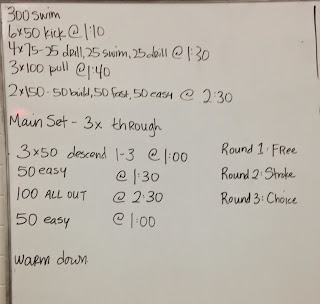 300 swim
6x50 kick @ 1:10
4x75 - 25 drill, 25 swim, 25 drill @ 1:30
3x100 pull @ 1:40
2x150 - 50 build, 50 fast, 50 easy @ 2:30
Main Set - 3x through
3x50 descend 1-3 @ 1:00 Round 1: Free
50 easy @ 1:30 Round 2: Stroke
100 ALL OUT @ 2:30 Round 3: Choice
50 easy @ 1:00
warm down